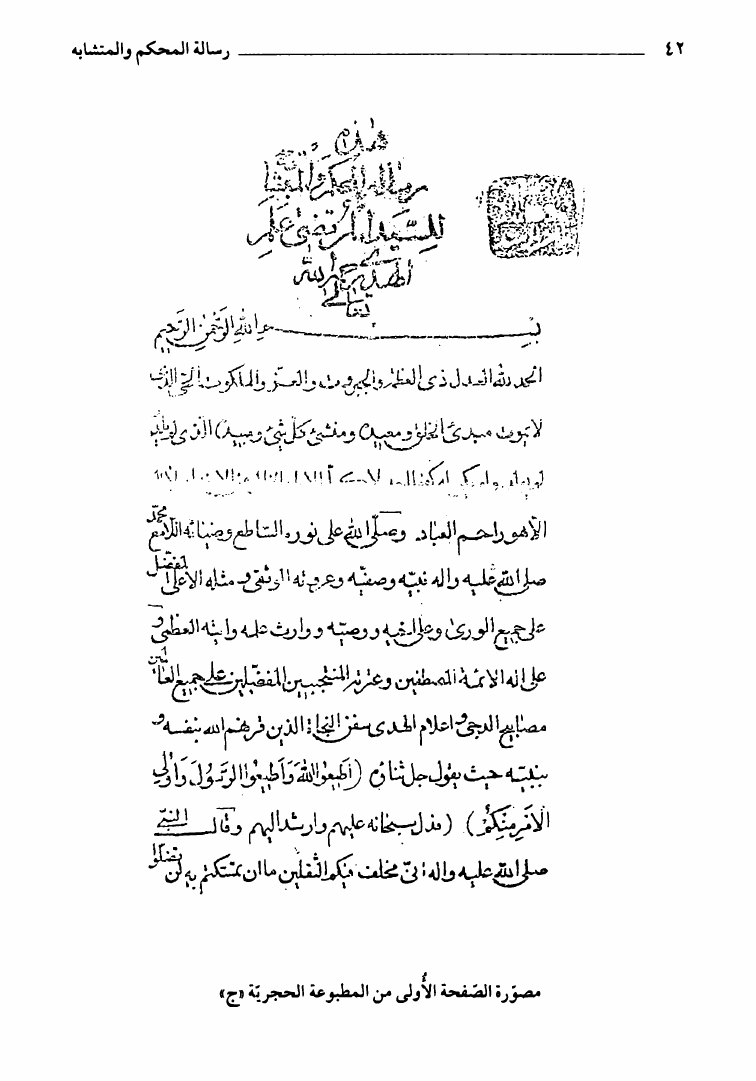 ٤٢ رسالة المحكم والمتشابه
هذه
رسالة المحكم والمتشابه
للسيد المرتضى علم
الهدى رحمه الله
تعالى
بسم الله الرحمن الرحيم
الحمد لله العدل ذي العظمة والجبروت والعز والملكوت الحي الذي
لا يموت مبدئ الخلق ومعيده ومنشئ كل شيء ومبيده الذي لم يلد
ولم يولد ولم يكن له كفوا احد
الاهو راحم العباد وصلى الله على نوره الساطع وضيائه اللامع محمد
صلى الله عليه واله نبيه وصفيه وعروته الوثقى ومثله الاعلى المفضل
على جميع الورى وعلى اخيه ووصيه ووارث علمه وايته العظمى و
على اله الائمة المصطفين وعترته المنتجبين المفضلين على جميع العالمين
مصابيح الدجى واعلام الهدى وسفن النجاة الذين قرنهم الله بنفسه و
بنبيه حيث يقول جل ثناؤه (اَطيعُوا اللهَ وَاَطيعُوا الرَّسُولَ وَاُولِي
الْاَمْرِ مِنْكُمْ) فدل سبحانه عليهم وارشد اليهم وقال النبي
صلى الله عليه واله انّي مخلف فيكم الثقلين ما ان تمسكتم به لن تضلوا
مصوّرة الصّفحة الأُولى من المطبوعة الحجريّة «ج»